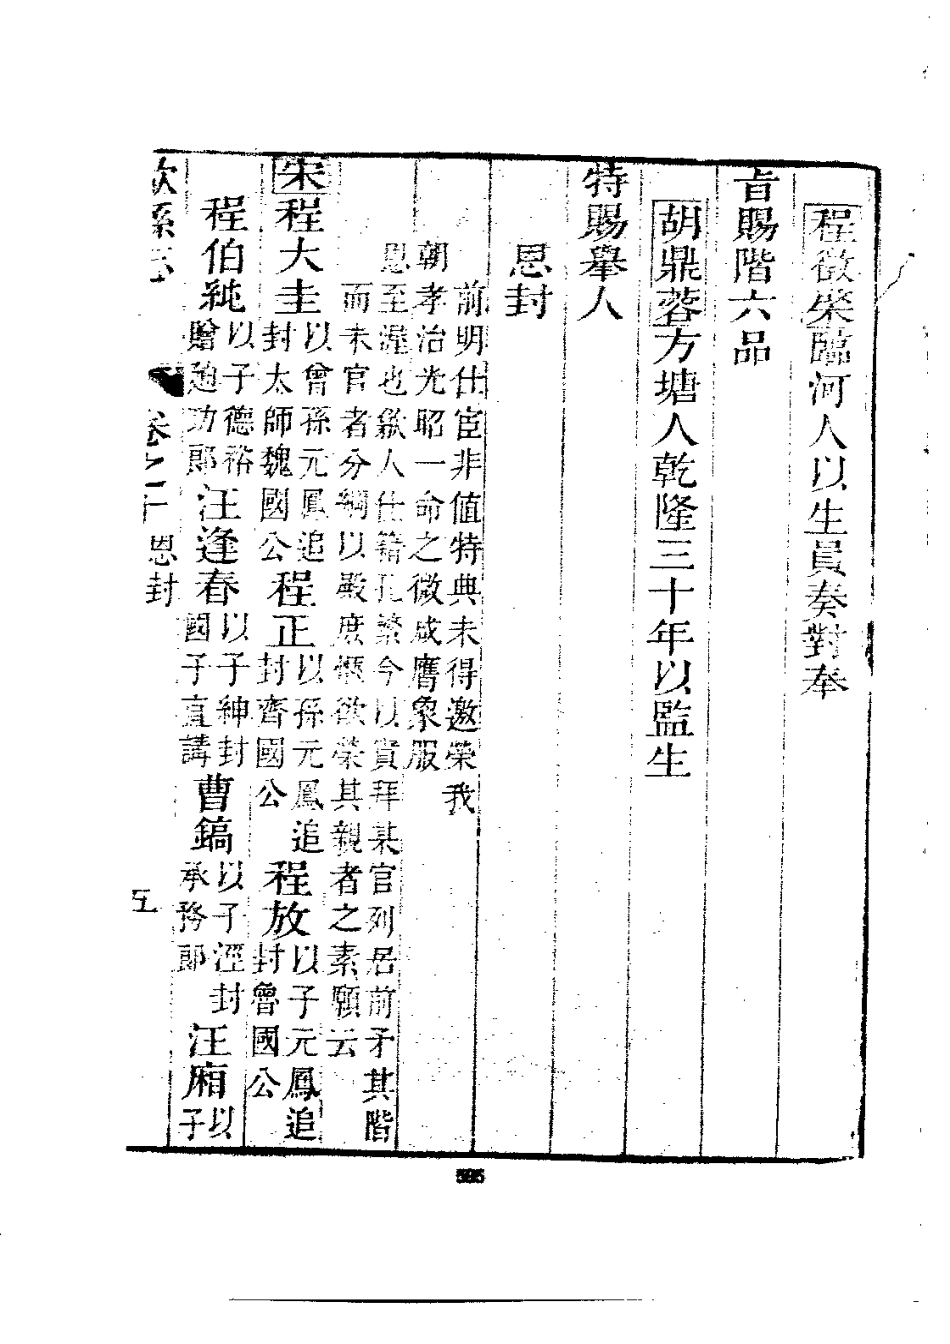 程徵棨臨河人以生員奏對奉
旨賜階六品
胡鼎蓉方塘人乾隆三十年以監生
特賜舉人
恩封
前明仕宦非值特典未得邀榮我
朝孝治光昭一命之微咸膺象服
恩至渥也歙人仕籍孔繁今以實拜某官列居前矛其階
而未官者分綱以殿庶愜欲榮其親者之素願云
宋程大圭以曾孫元鳳追封太師魏國公程正以孫元鳳追封齊國公程放以子元鳳追封魯國公
程伯純以子德裕贈迪功郎汪逢春以子紳封國子直講曹鎬以子涇封承務郎汪廂以子
歙縣志
卷之十
恩封
五
595